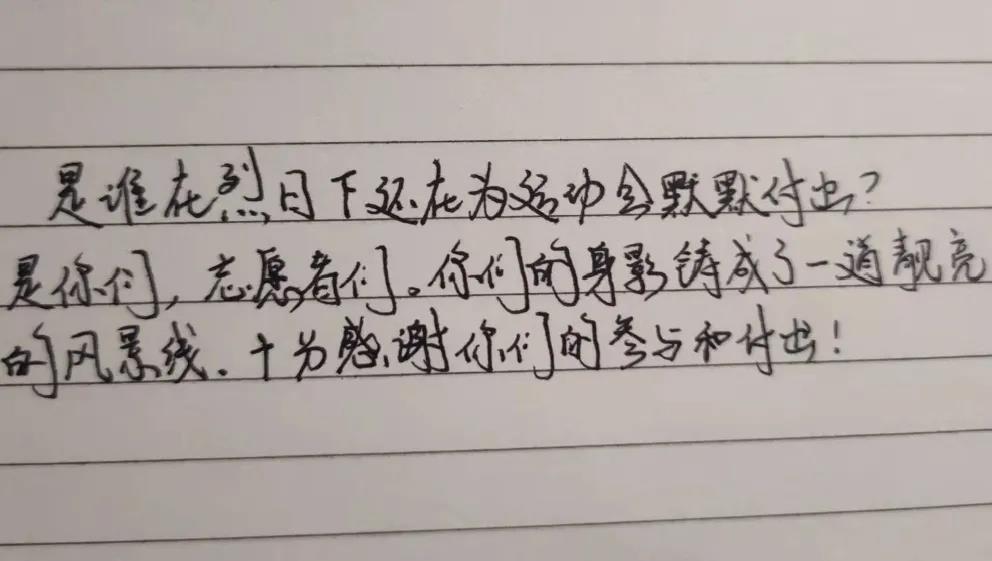 是谁在烈日下还在为运动会默默付出?
是你们,志愿者们。你们的身影铸成了一道靓亮
的风景线.十分感谢你们的参与和付出!